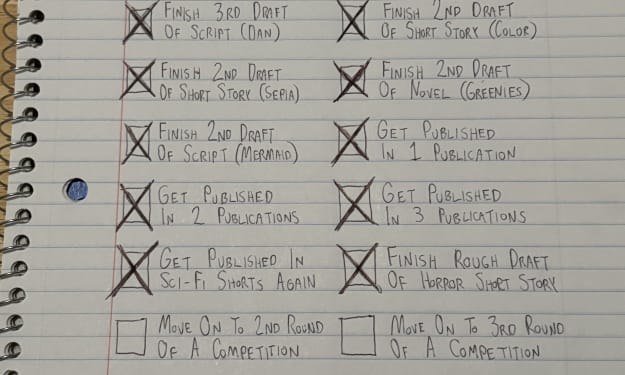 Finish 3rd Draft
Of Script (Dan)
Finish 2nd Draft
Of Short Story (Color)
Finish 2nd Draft
Of Short Story (Sepia)
Finish 2nd Draft
Of Novel (Greenies)
Finish 2nd Draft
Of Script (Mermaid)
Get Published
In 1 Publication
Get Published
In 2 Publications
Get Published
In 3 Publications
Get Published In
Sci-Fi Shorts Again
Finish Rough Draft
Of Horror Short Story
Move On To 2nd Round
Of A Competition
Move On To 3rd Round
Of A Competition